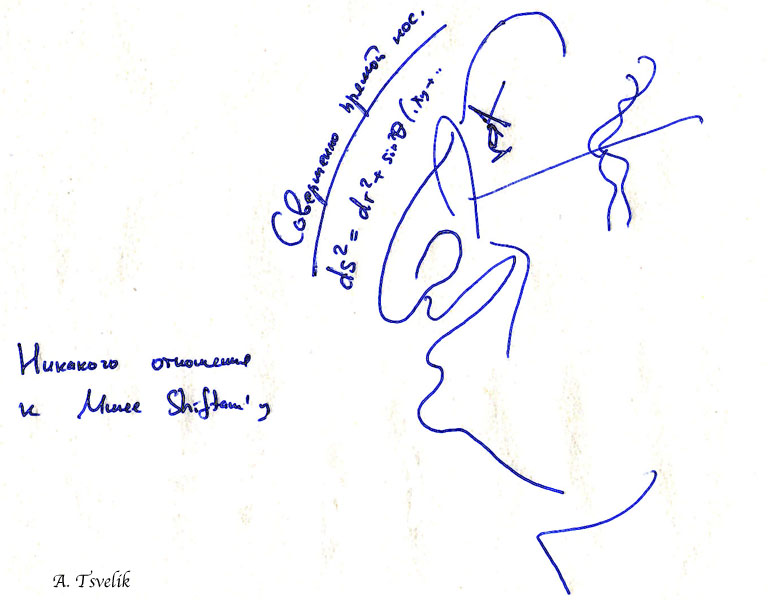 Совершенно прямой нос.
ds² = dr² + sin²θ (
Никакого отношения
к Мише Shifman'у
A. Tsvelik